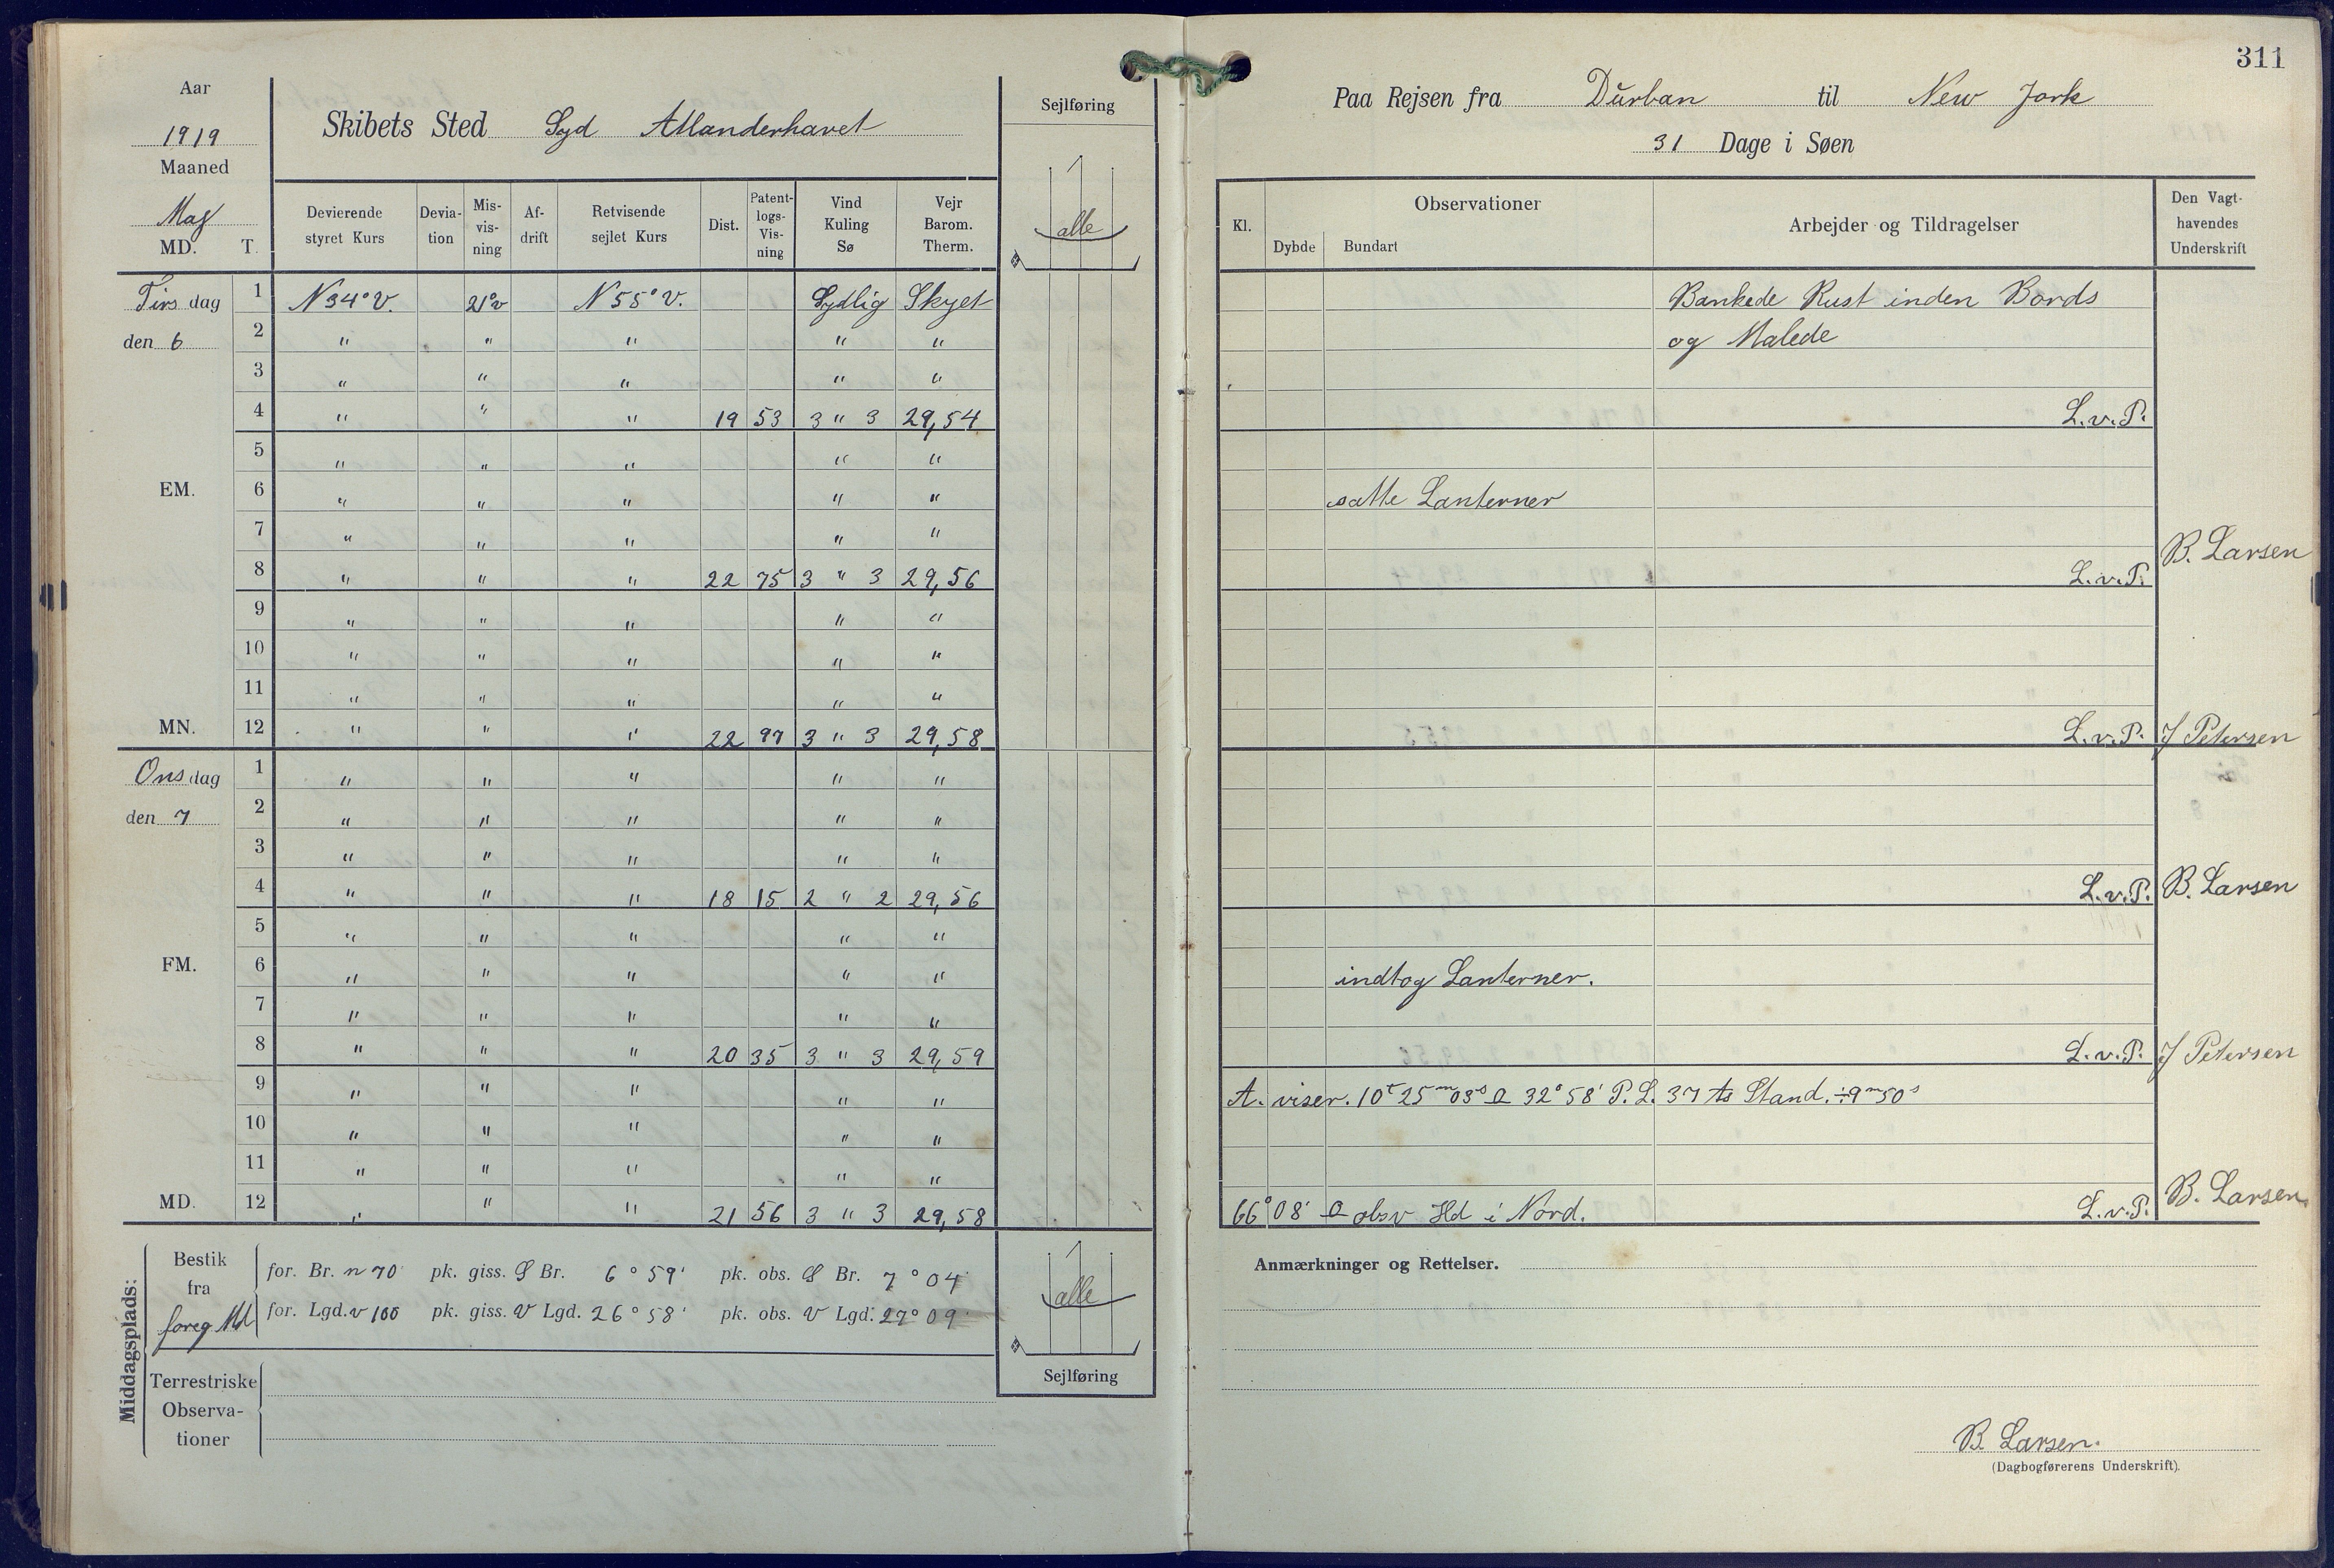 Aar
1919
Maaned
Maj
MD. T.
Skibets Sted Syd Atlanderhavet
Sejlføring
Devierende styret Kurs
Deviation
Misvisning
Afdrift
Retvisende sejlet Kurs
Dist.
Patentlogs-Visning
Vind Kuling Sø
Vejr Barom. Therm.
alle
Tirsdag 1 N34°V. 21°v N55°V. Sydlig Skyet
den 6 2 " " " " "
3 " " " " "
4 " " " 19 53 3 " 3 29,54
5 " " " " "
EM. 6 " " " " "
7 " " " " "
8 " " " 22 75 3 " 3 29,56
9 " " " " "
10 " " " " "
11 " " " " "
MN. 12 " " " 22 97 3 " 3 29,58
Onsdag 1 " " " " "
den 7 2 " " " " "
3 " " " " "
4 " " " 18 15 2 " 2 29,56
5 " " " " "
FM. 6 " " " " "
7 " " " " "
8 " " " 20 35 3 " 3 29,59
9 " " " " "
10 " " " " "
11 " " " " "
MD. 12 " " " 21 56 3 " 3 29,58
Middagsplads:
Bestik
fra
foreg Md
for. Br. n 70 pk. giss. S Br. 6° 59' pk. obs. S Br. 7° 04'
for. Lgd. v 100 pk. giss. V Lgd. 26° 58' pk. obs. V Lgd. 27° 09'
alle
Sejlføring
Terrestriske
Observa-
tioner
311
Paa Rejsen fra Durban til New Jork
31 Dage i Søen
Kl.
Observationer
Dybde Bundart
Arbejder og Tildragelser
Den Vagt-
havendes
Underskrift
Bankede Rust inden Bords
og Malede
L.v.P.
satte Lanterner
B. Larsen
L.v.P.
L.v.P. J Petersen
L.v.P. B. Larsen
indtog Lanterner.
L.v.P. J Petersen
A. viser. 10t 25m 03s 32° 58' P.L. 37 Stand. ÷9m 50s
66° 08' obsv Hd i Nord. L.v.P. B. Larsen
Anmærkninger og Rettelser.
B. Larsen.
(Dagbogførerens Underskrift).